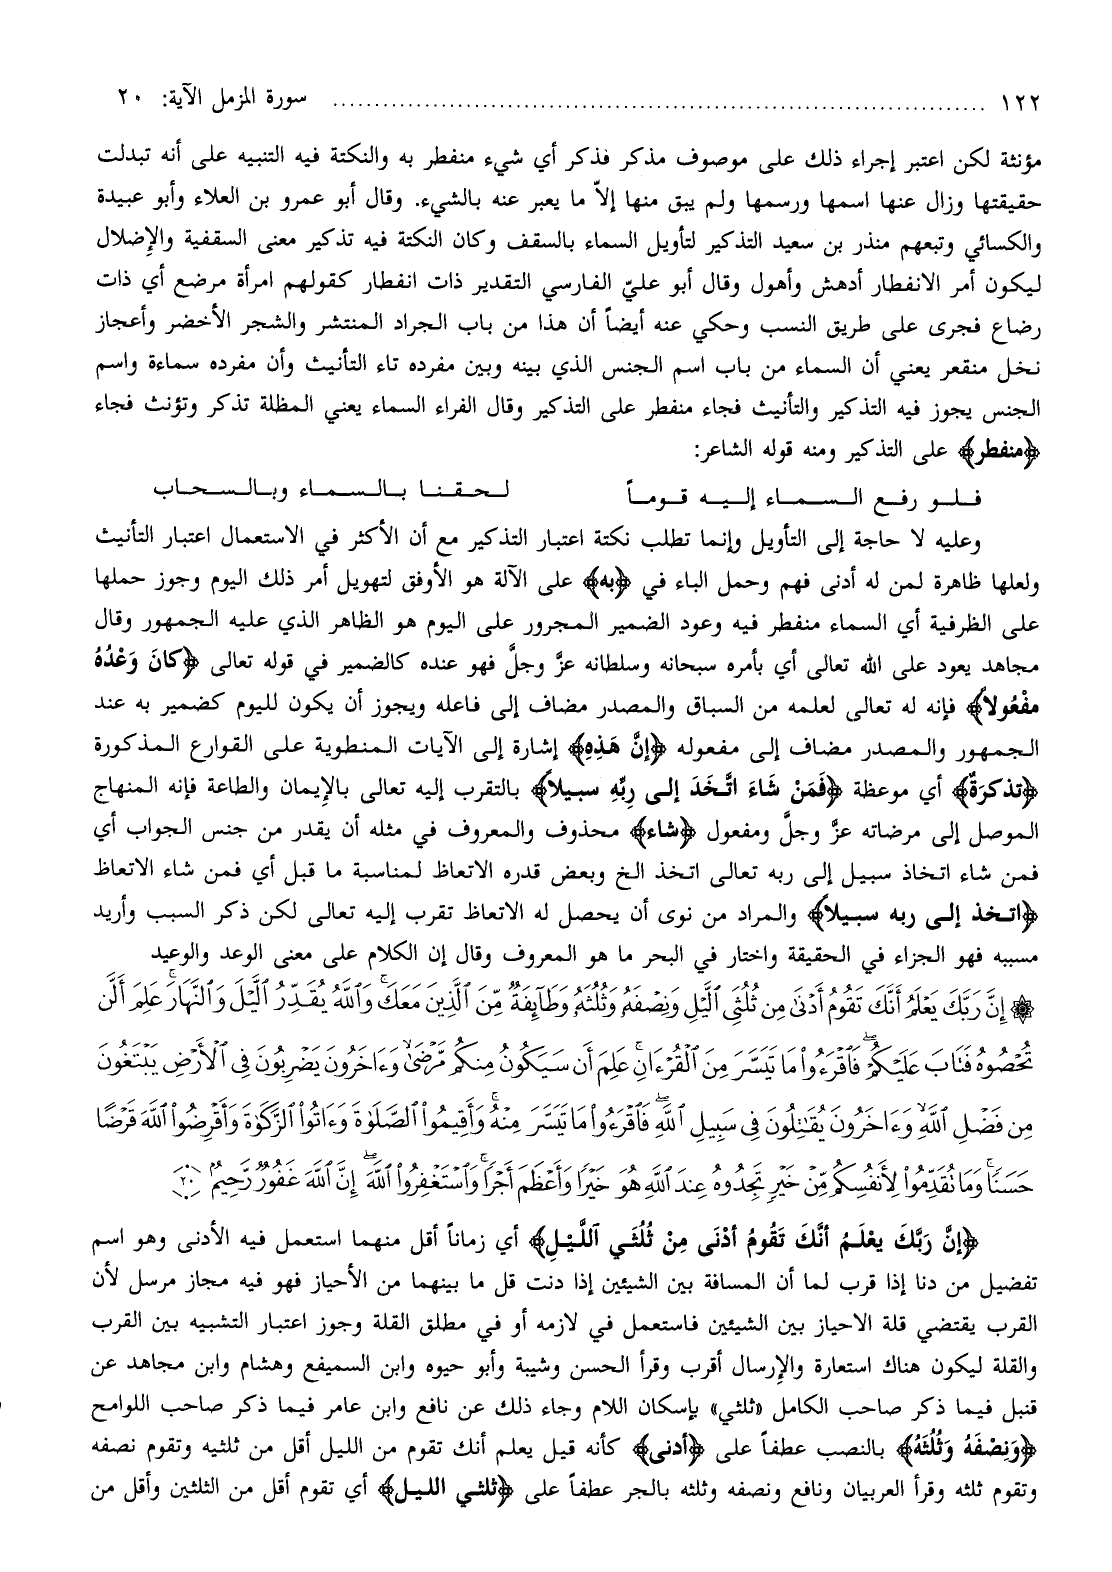 ١٢٢ ........................................................................ سورة المزمل الآية: ٢٠
مؤنثة لكن اعتبر إجراء ذلك على موصوف مذكر فذكر أي شيء منفطر به والنكتة فيه التنبيه على أنه تبدلت
حقيقتها وزال عنها اسمها ورسمها ولم يبق منها إلاّ ما يعبر عنه بالشيء. وقال أبو عمرو بن العلاء وأبو عبيدة
والكسائي وتبعهم منذر بن سعيد التذكير لتأويل السماء بالسقف وكان النكتة فيه تذكير معنى السقفية والإضلال
ليكون أمر الانفطار أدهش وأهول وقال أبو عليّ الفارسي التقدير ذات انفطار كقولهم امرأة مرضع أي ذات
رضاع فجرى على طريق النسب وحكي عنه أيضاً أن هذا من باب الجراد المنتشر والشجر الأخضر وأعجاز
نخل منقعر يعني أن السماء من باب اسم الجنس الذي بينه وبين مفرده تاء التأنيث وأن مفرده سماءة واسم
الجنس يجوز فيه التذكير والتأنيث فجاء منفطر على التذكير وقال الفراء السماء يعني المظلة تذكر وتؤنث فجاء
﴿منفطر﴾ على التذكير ومنه قوله الشاعر:
فلو رفع السماء إليه قوماً لحقنا بالسماء وبالسحاب
وعليه لا حاجة إلى التأويل وإنما تطلب نكتة اعتبار التذكير مع أن الأكثر في الاستعمال اعتبار التأنيث
ولعلها ظاهرة لمن له أدنى فهم وحمل الباء في ﴿به﴾ على الآلة هو الأوفق لتهويل أمر ذلك اليوم وجوز حملها
على الظرفية أي السماء منفطر فيه وعود الضمير المجرور على اليوم هو الظاهر الذي عليه الجمهور وقال
مجاهد يعود على الله تعالى أي بأمره سبحانه وسلطانه عزَّ وجلَّ فهو عنده كالضمير في قوله تعالى ﴿كانَ وَعْدُهُ
مفْعُولاً﴾ فإنه له تعالى لعلمه من السباق والمصدر مضاف إلى فاعله ويجوز أن يكون لليوم كضمير به عند
الجمهور والمصدر مضاف إلى مفعوله ﴿إنَّ هَذِهِ﴾ إشارة إلى الآيات المنطوية على القوارع المذكورة
﴿تذكرَةٌ﴾ أي موعظة ﴿فَمَنْ شَاءَ اتَّخَذَ إلى ربِّهِ سبيلاً﴾ بالتقرب إليه تعالى بالإيمان والطاعة فإنه المنهاج
الموصل إلى مرضاته عزَّ وجلَّ ومفعول ﴿شاء﴾ محذوف والمعروف في مثله أن يقدر من جنس الجواب أي
فمن شاء اتخاذ سبيل إلى ربه تعالى اتخذ الخ وبعض قدره الاتعاظ لمناسبة ما قبل أي فمن شاء الاتعاظ
﴿اتخذ إلى ربه سبيلاً﴾ والمراد من نوى أن يحصل له الاتعاظ تقرب إليه تعالى لكن ذكر السبب وأريد
مسببه فهو الجزاء في الحقيقة واختار في البحر ما هو المعروف وقال إن الكلام على معنى الوعد والوعيد
۞ إِنَّ رَبَّكَ يَعْلَمُ أَنَّكَ تَقُومُ أَدْنَىٰ مِن ثُلُثَيِ ٱلَّيْلِ وَنِصْفَهُۥ وَثُلُثَهُۥ وَطَآئِفَةٌ مِّنَ ٱلَّذِينَ مَعَكَۚ وَٱللَّهُ يُقَدِّرُ ٱلَّيْلَ وَٱلنَّهَارَۚ عَلِمَ أَلَّن
تُحْصُوهُ فَتَابَ عَلَيْكُمْۖ فَٱقْرَءُوا۟ مَا تَيَسَّرَ مِنَ ٱلْقُرْءَانِۚ عَلِمَ أَن سَيَكُونُ مِنكُم مَّرْضَىٰۙ وَءَاخَرُونَ يَضْرِبُونَ فِى ٱلْأَرْضِ يَبْتَغُونَ
مِن فَضْلِ ٱللَّهِۙ وَءَاخَرُونَ يُقَٰتِلُونَ فِى سَبِيلِ ٱللَّهِۖ فَٱقْرَءُوا۟ مَا تَيَسَّرَ مِنْهُۚ وَأَقِيمُوا۟ ٱلصَّلَوٰةَ وَءَاتُوا۟ ٱلزَّكَوٰةَ وَأَقْرِضُوا۟ ٱللَّهَ قَرْضًا
حَسَنًاۚ وَمَا تُقَدِّمُوا۟ لِأَنفُسِكُم مِّنْ خَيْرٍ تَجِدُوهُ عِندَ ٱللَّهِ هُوَ خَيْرًا وَأَعْظَمَ أَجْرًاۚ وَٱسْتَغْفِرُوا۟ ٱللَّهَۖ إِنَّ ٱللَّهَ غَفُورٌ رَّحِيمٌۢ ٢٠
﴿إنَّ رَبَّكَ يعْلَمُ أنَّكَ تَقُومُ أدْنَى مِنْ ثُلُثَيِ اللَّيْلِ﴾ أي زماناً أقل منهما استعمل فيه الأدنى وهو اسم
تفضيل من دنا إذا قرب لما أن المسافة بين الشيئين إذا دنت قل ما بينهما من الأحياز فهو فيه مجاز مرسل لأن
القرب يقتضي قلة الاحياز بين الشيئين فاستعمل في لازمه أو في مطلق القلة وجوز اعتبار التشبيه بين القرب
والقلة ليكون هناك استعارة والإرسال أقرب وقرأ الحسن وشيبة وأبو حيوه وابن السميفع وهشام وابن مجاهد عن
قنبل فيما ذكر صاحب الكامل «ثلثي» بإسكان اللام وجاء ذلك عن نافع وابن عامر فيما ذكر صاحب اللوامح
﴿وَنِصْفَهُ وَثُلُثَهُ﴾ بالنصب عطفاً على ﴿أدنى﴾ كأنه قيل يعلم أنك تقوم من الليل أقل من ثلثيه وتقوم نصفه
وتقوم ثلثه وقرأ العربيان ونافع ونصفه وثلثه بالجر عطفاً على ﴿ثلثي الليل﴾ أي تقوم أقل من الثلثين وأقل من